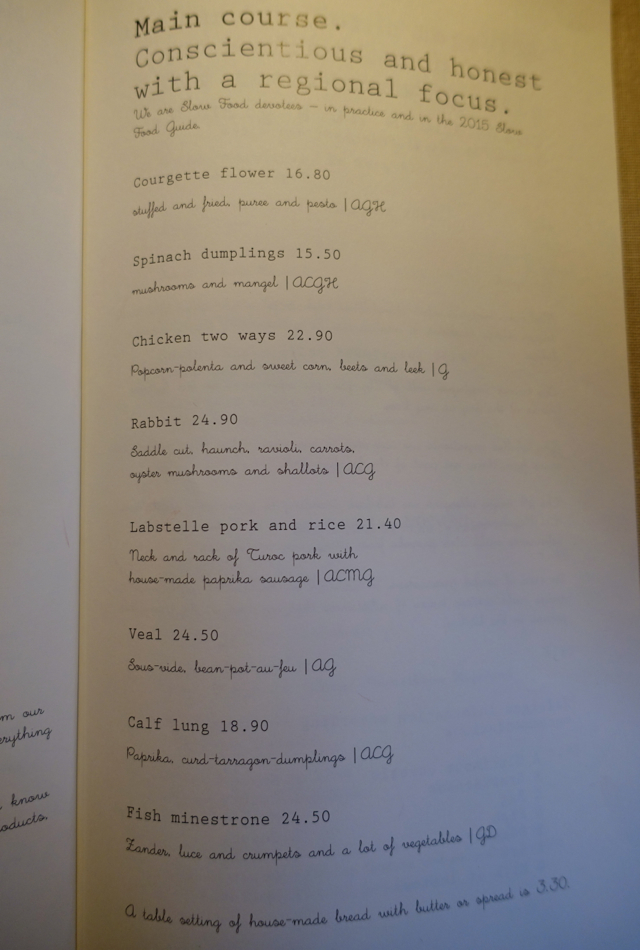 Main course.
Conscientious and honest
with a regional focus.
We are Slow Food devotees – in practice and in the 2015 Slow
Food Guide.
Courgette flower 16.80
stuffed and fried, puree and pesto | AGH
Spinach dumplings 15.50
mushrooms and mangel | ACGH
Chicken two ways 22.90
Popcorn-polenta and sweet corn, beets and leek | G
Rabbit 24.90
Saddle cut, haunch, ravioli, carrots,
oyster mushrooms and shallots | ACG
Labstelle pork and rice 21.40
Neck and rack of Turoc pork with
house-made paprika sausage | ACMG
Veal 24.50
Sous-vide, bean-pot-au-feu | AG
Calf lung 18.90
Paprika, curd-tarragon-dumplings | ACG
Fish minestrone 24.50
Zander, luce and crumpets and a lot of vegetables | GD
A table setting of house-made bread with butter or spread is 3.30.
m our
erything
know
oducts.